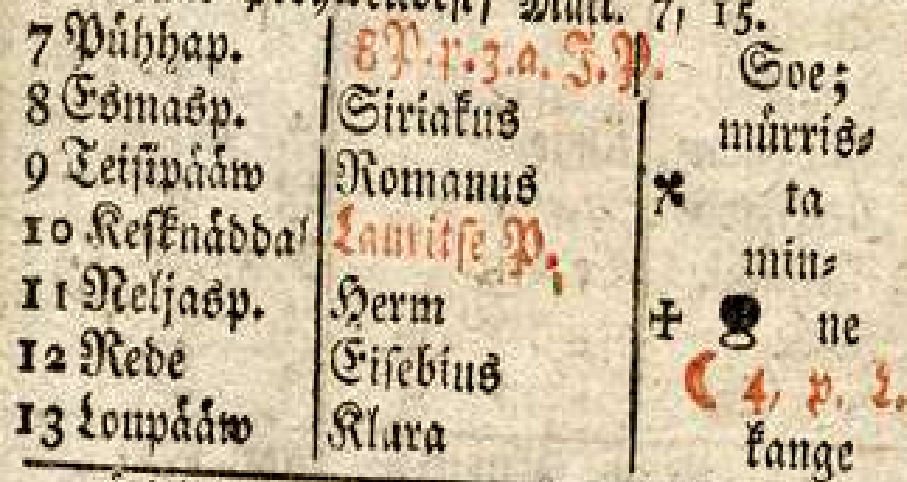 Matt. 7, 15.
7 Pühhap. 8 P. r. z. a. J. P. Soe;
8 Esmasp. Siriakus mürris⸗
9 Teisipååw Romanus ta
10 Kesknådda Lauritse P. min⸗
11 Neljasp. Herm ne
12 Rede Eisebius ☾ 4, p. L.
13 Loupååw Klara kange